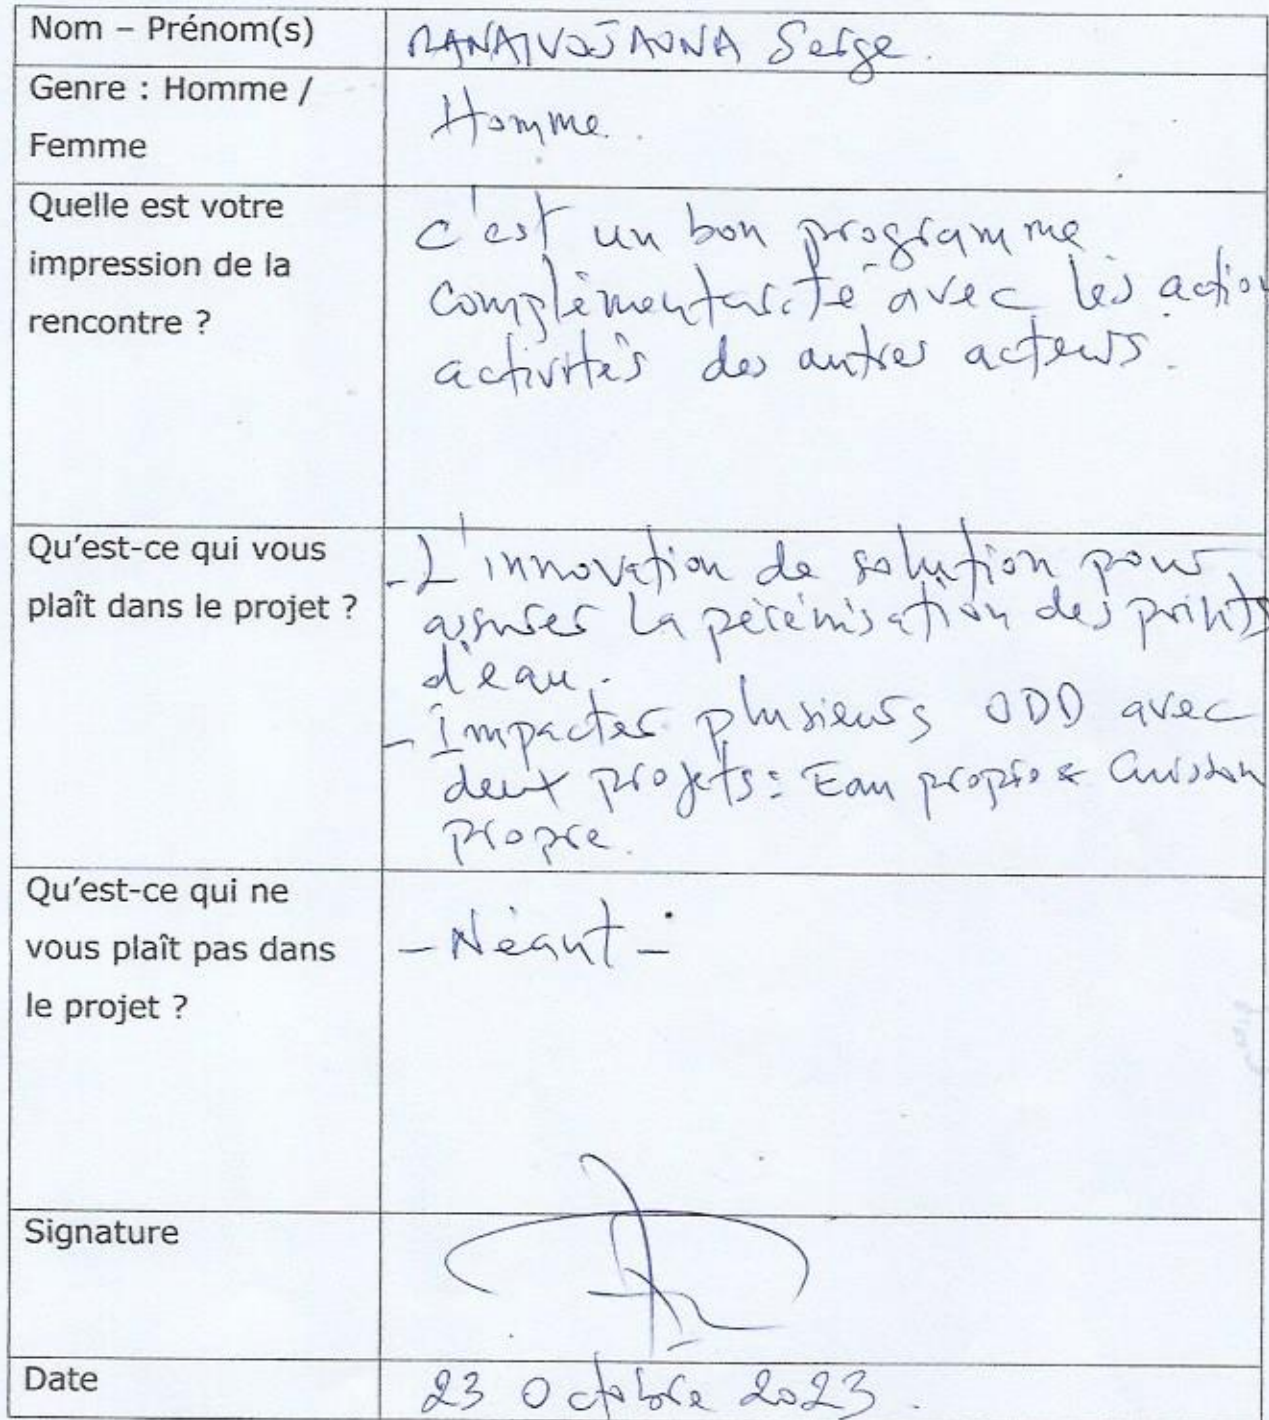 Nom – Prénom(s)
RANAIVOJAONA Serge.
Genre : Homme /
Femme
Homme.
Quelle est votre
impression de la
rencontre ?
c'est un bon programme
complémentarité avec les action
activités des autres acteurs.
Qu'est-ce qui vous
plaît dans le projet ?
- L'innovation de solution pour
assurer la pérénisation des points
d'eau.
- Impacter plusieurs ODD avec
deux projets : Eau propre & Cuisson
propre.
Qu'est-ce qui ne
vous plaît pas dans
le projet ?
- Néant -
Signature
Date
23 Octobre 2023.